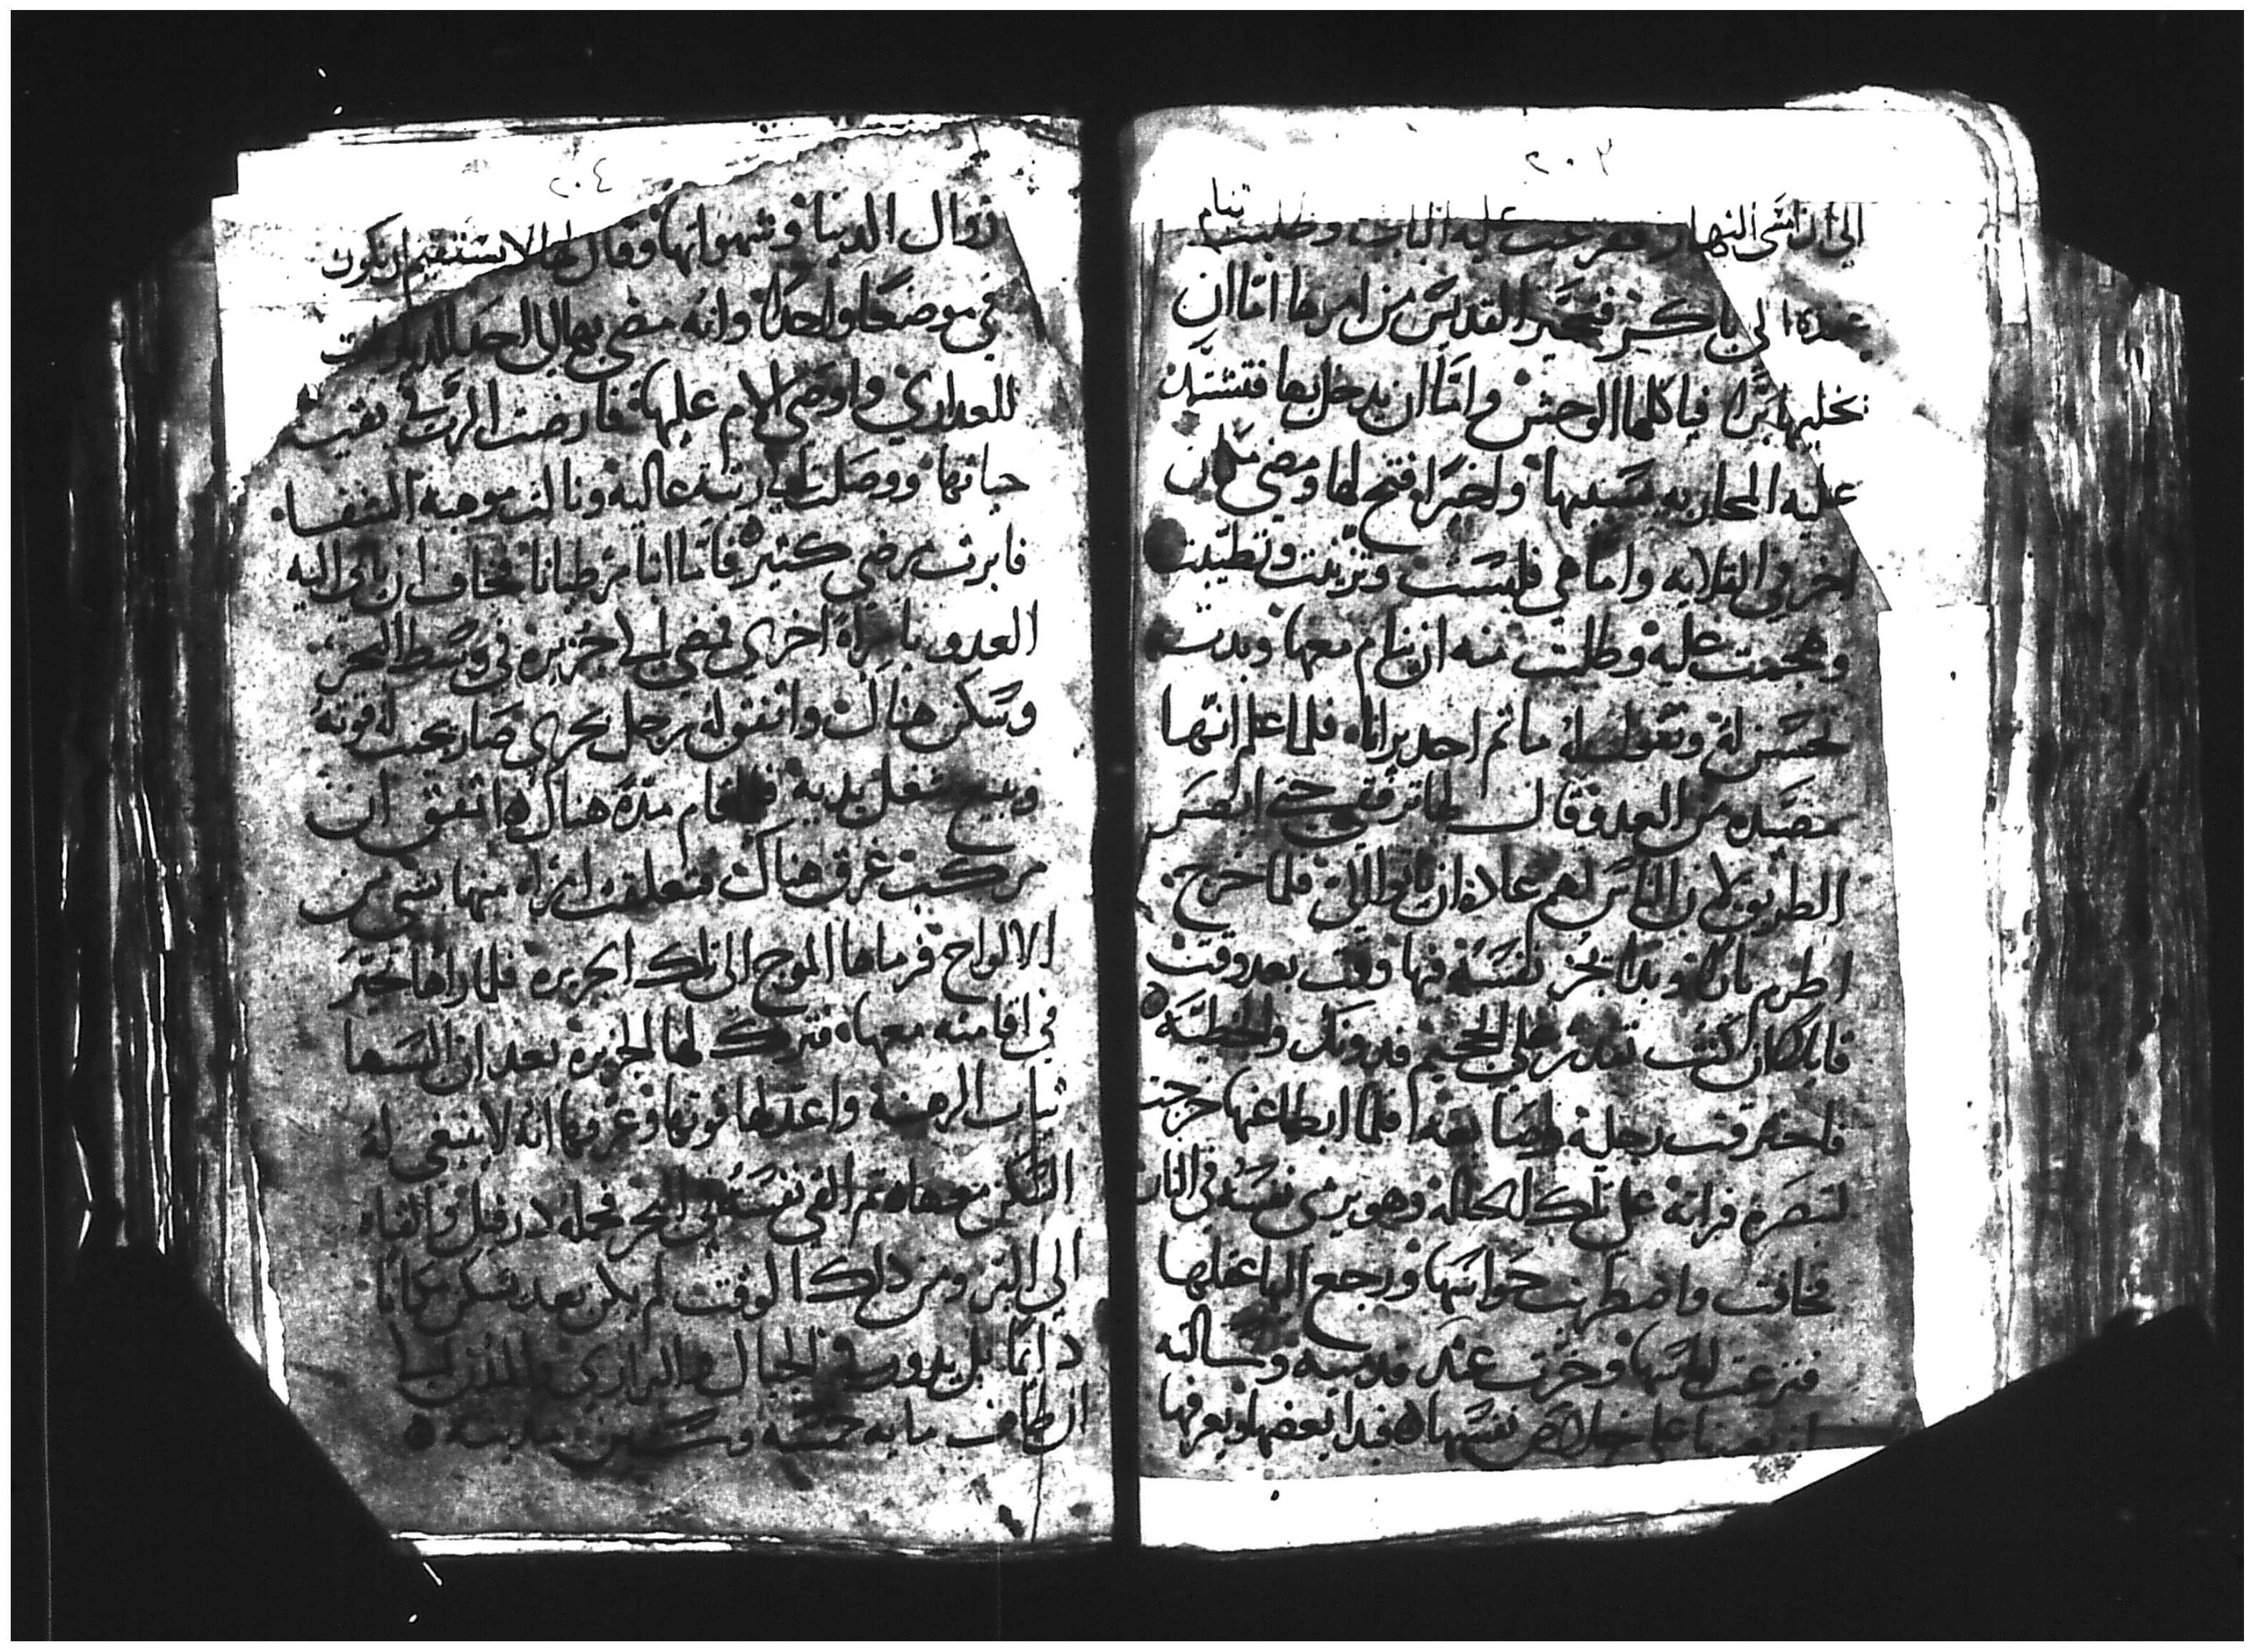 ٢٠٣
الى ان امسى النهار فقرعت عليه الباب وطلبت تنام
عنده الى باكر فتحير القديس من امرها اما ان
يخليها برا فياكلها الوحش واما ان يدخل بها فتشتد
عليه المحاربه بسببها واخيرا فتح لها ومضى مكان
اخر في القلايه واما هي فلبست وتزينت وتطيبت
وهجمت عليه وطلبت منه ان ينام معها وبدت
تحسن له وتقول له ما ثم احد يرانا فلما علم انها
مصيده من العدو قال لها ترفقي حتى ابصر
الطريق لان الناس لهم عادة ان ياتوا الي فلما خرج
اضرم نارا وبدا يجر نفسه فيها وقت بعد وقت
قايلا ان كنت تقدر على الجحيم فدونك والخطيه
فاحترقت رجليه وايضا فلما ابطا عنها خرجت
لتبصره فراته على تلك الحاله وهو يرمي نفسه في النار
فخافت واضطربت حواسها ورجع اليها عقلها
فنزعت لباسها وخرت عند قدميه وسالته
ان يعينها على خلاص نفسها فبدا يعضها ويعرفها
٢٠٤
زوال الدنيا وشهواتها وقال لها لا يستقيم ان نكون
في موضعا واحدا وانه مضى بها الى احد الديارات
للعدارى واوصى الام عليها فارضت الرب في بقيت
حياتها ووصلت الى رتبة عاليه ونالت موهبة الشفا
فابرت مرضى كثير فاما انبا مرطيانا فخاف ان ياتي اليه
العدو بامراة اخرى فمضى الى جزيره في وسط البحر
وسكن هناك واتفق له رجل بحري صار يجيب له قوته
ويبيع شغل يديه فلما قام مدة هناك اتفق ان
مركب غرق هناك فتعلقت امراه منها بشي من
الالواح فرماها الموج الى تلك الجزيره فلما راها تحير
في اقامته معها فترك لها الجزيره بعد ان البسها
ثياب الرهبنة واعد لها قوتها وعرفها انه لا ينبغي له
السكن معها ثم القى نفسه في البحر فحمله درفيل والقاه
الى البر ومن ذلك الوقت لم يكن بعد يسكن مكانا
دايما بل يدور في الجبال والبراري والمدن الى
ان طاف مايه خمسه وستين مدينه